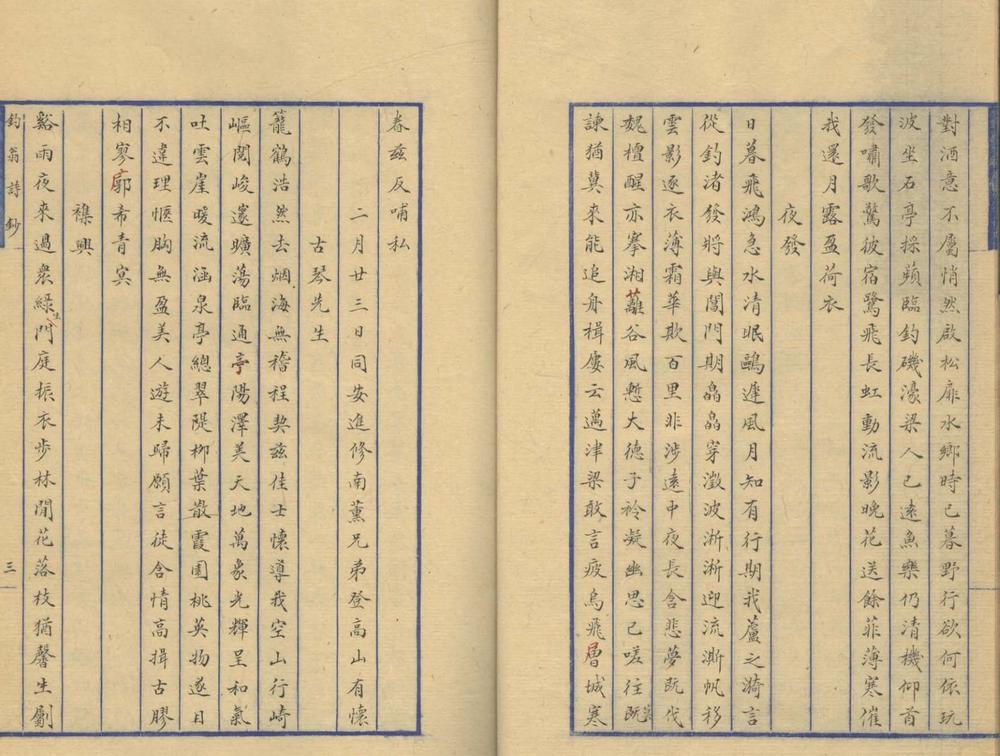 對酒意不屬悄然啟松扉水鄉時已暮野行欲何依玩
波坐石亭採蘋臨釣磯濠梁人已遠魚樂仍清機仰首
發嘯歌驚彼宿鷺飛長虹動流影晚花送餘菲薄寒催
我還月露盈荷衣
夜發
日暮飛鴻急水清眠鷗遲風月知有行期我蘆之漪言
從釣渚發將與閶門期晶晶穿澂波淅淅迎流澌帆移
雲影逐衣薄霜華欺百里非涉遠中夜長含悲夢既伐
魏檀醒亦搴湘蘺谷風慙大德子衿凝幽思已嗟往既
諫猶冀來能追舟楫屢云邁津梁敢言疲烏飛層城寒
眷兹反哺私
二月廿三日同安進修南薰兄弟登高山有懷
古琴先生
籠鶴浩然去烟海無稽程契兹佳士懷導我空山行崎
嶇閱峻邃曠蕩臨通亭陽澤美天地萬彙光輝呈和氣
吐雲崖暖流涵泉亭總翠隄柳葉散霞園桃英物遂目
不違理愜胸無盈美人遊未歸願言徒含情高揖古膠
相寥廓希青冥
襍興
谿雨夜來過衆綠生門庭振衣步林閒花落枝猶馨生劚
釣翁詩鈔
三